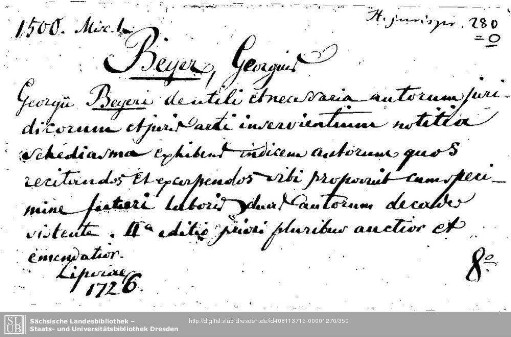 H. jurispr. 280
=0
1500. Misc. 1.
Beyer, Georgius
Georgii Beyeri de utili et necessaria autorum juri-
dicorum et juris arti inservientium notitia
schediasma exhibens indicem autorum quos
recitandos et excerpendos sibi proposuit cum speci-
mine futuri laboris duas autorum decades
sistente. IIa editio priori pluribus auctior et
emendatior.
Lipsiae
1726.
8o
SLUB
Sächsische Landesbibliothek –
Staats- und Universitätsbibliothek Dresden